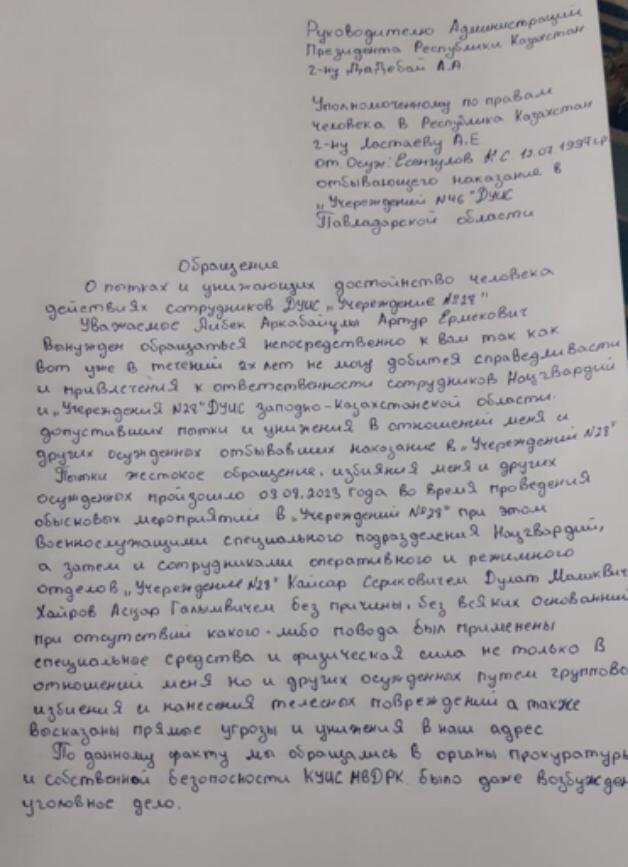 Руководителю Администраций
Президента Республики Казахстан
г-ну Дадебай А.А.
Уполномоченному по правам
человека в Республика Казахстан
г-ну Ластаеву А.Е
от Осуж: Есенгулов М.С. 12.07.1997гр
отбывающего наказание в
„Учереждений N46" ДУИС
Павладарской области
Обращения
О пытках и унижающих достойнство человека
действиях сотрудников ДУИС „Учереждение №28"
Уважаемое Айбек Аркабайұлы Артур Ермекович
Вынужден обращаться непосредственно к вам так как
вот уже в течений 2х лет не могу добится справедливасти
и привлечения к ответственности сотрудников Нацгвардий
и „Учереждения N28" ДУИС западно-Казахстанской области.
допустивших пытки и унижения в отношений меня и
других осужденных отбывавших наказание в „Учереждений N28"
Пытки жестокое обращение, избияния меня и других
осужденных произошло 03.08.2023 года во время проведения
обысковых мероприятий в „Учереждений №28" при этом
Военнослужащими специального подразделения Нацгвардий,
а затем и сотрудниками оперативного и режимного
отделов „Учереждение N28" Кайсар Сериковичем Дулат Маликвич
Хайров Асқар Галымвичем без причины, без всяких основанний
при отсутствий какого-либо повода был применены
специальное средства и физическая сила не только в
отношений меня но и других осужденных путем группово
избиения и нанесения телесных повреждений а также
высказаны прямые угрозы и унижения в наш адрес
По данному факту мы обращались в органы прокуратуры
и собственной безопосности КУИС МВДРК. было даже возбужден
уголовное дело.